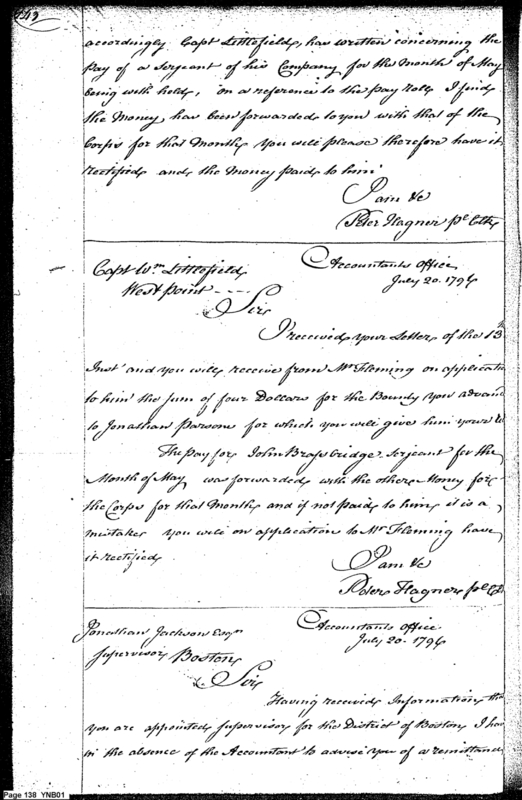 accordingly Capt Littlefield, has written concerning the
pay of a Serjeant of his Company for the Month of May
being with held, on a reference to the pay Roll I find
the Money has been forwarded to you with that of the
Corps for that Month you will please therefore have it
rectified and the Money paid to him
I am &c
Peter Hagner pl Clk
Capt Wm Littlefield
West point
Accountants Office
July 20. 1796
Sir
I received your Letter of the 13
Inst and you will receive from Mr Fleming on applicati
to him the sum of four Dollars for the Bounty you advanc
to Jonathan Parsons for which you will give him your
The pay for John Brassbridge Serjeant for the
Month of May was forwarded with the other Money for
the Corps for that Month and if not paid to him, it is a
mistake you will on application to Mr Fleming have
it rectified
I am &c
Peter Hagner pl Clk
Jonathan Jackson Esqr
Supervisor Boston
Accountants Office
July 20. 1796
Sir
Having received Information tha
you are appointed Supervisor for the District of Boston, I hav
in the absence of the Accountant to advise you of a remittanc
Page 138 YNB01